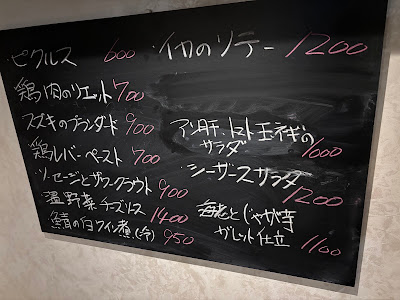 ・ピクルス 600
鶏肉のリエット 700
スズキのブランダード 900
鶏レバーペースト 700
ソーセージとザワークラウト 900
温野菜チーズソース 1400
鯖の白ワイン煮(冷) 950
・イカのソテー 1200
アン肝、トマト玉ネギの
サラダ 1000
シーザースサラダ
1200
海老とじゃが芋
ガレット仕立 1100